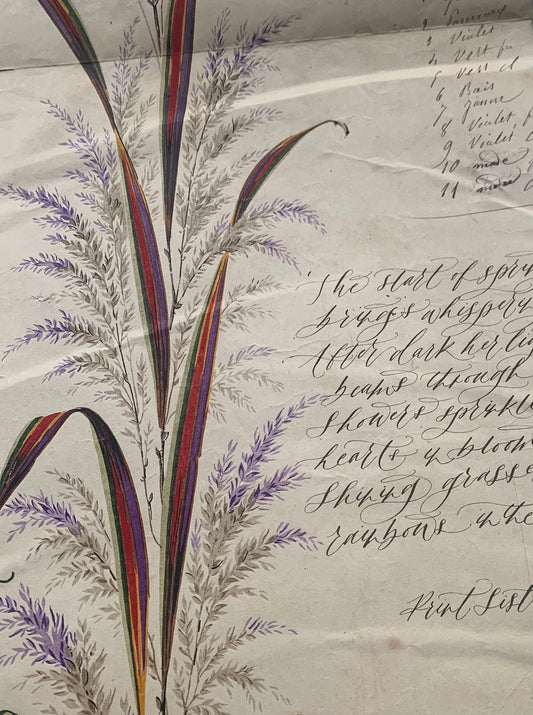 3 Violet
4 Vert fu
5 Vert cl
6 Bais
7 Jaune
8 Violet f
9 Violet c
10
11
The start of spri
brings whisperin
After dark her lig
beams through
Showers sprinkl
hearts in bloom
Shining grasse
rainbows in the
Print List